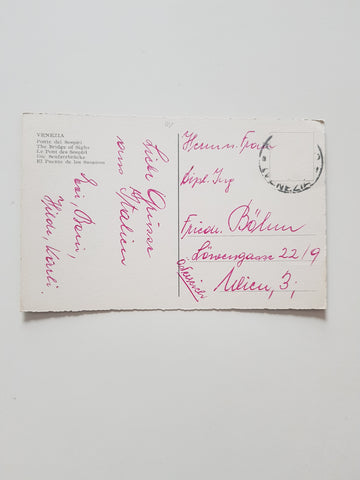 VENEZIA
Ponte dei Sospiri
The Bridge of Sighs
Le Pont des Soupirs
Die Seufzerbrücke
El Puente de los Suspiros
Liebe Grüsse
aus Italien
Hilde, Karli
Herrn u. Frau
Dipl. Ing
Friedr. Böhm
Löwengasse 22/9
Wien, 3;